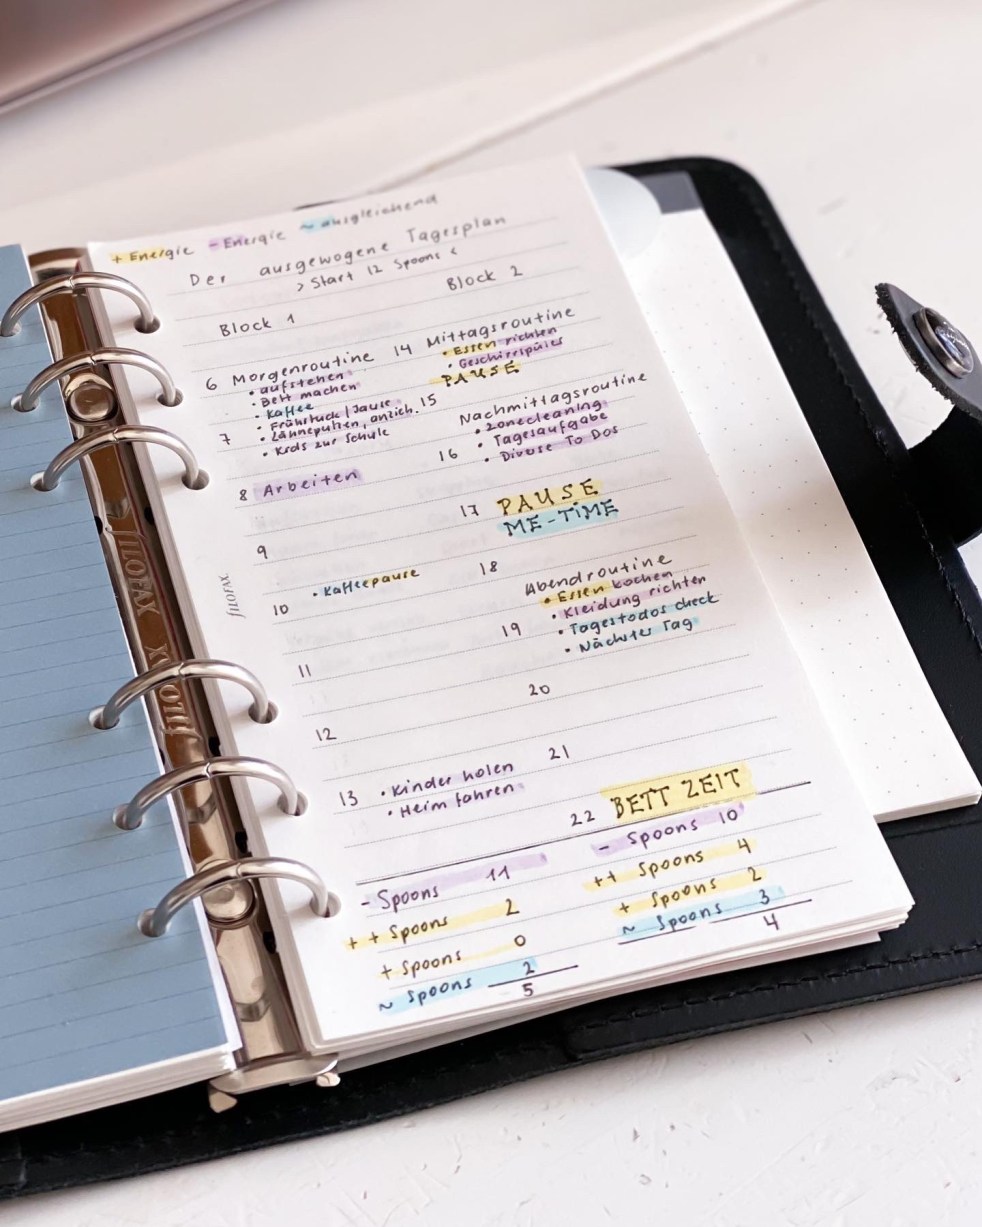 + Energie - Energie ~ ausgleichend
Der ausgewogene Tagesplan
> Start 12 Spoons <
Block 1
6 Morgenroutine
• aufstehen
• Bett machen
• Kaffee
• Frühstück / Jause
7 • Zähneputzen, anzieh.
• Kids zur Schule
8 Arbeiten
9
• Kaffeepause
10
11
12
13 • Kinder holen
• Heim fahren
- Spoons 11
++ Spoons 2
+ Spoons 0
~ Spoons 2
5
Block 2
14 Mittagsroutine
• Essen richten
• Geschirrspüler
PAUSE
15
Nachmittagsroutine
• Zonecleaning
• Tagesaufgabe
16 • Diverse To Dos
17 PAUSE
ME-TIME
18
Abendroutine
• Essen kochen
• Kleidung richten
19 • Tagestodos check
• Nächster Tag
20
21
22 BETT ZEIT
- Spoons 10
++ Spoons 4
+ Spoons 2
~ Spoons 3
4
filofax
FILOFAX